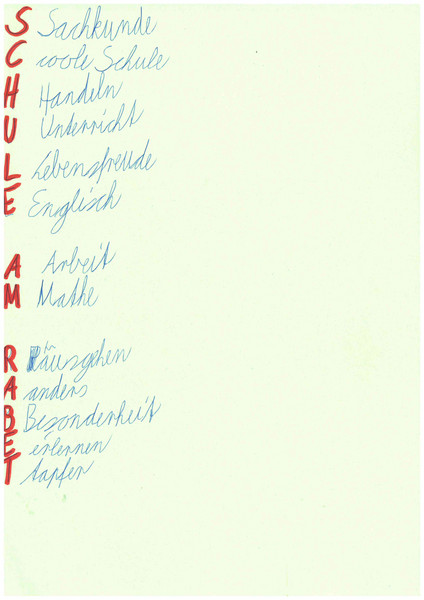 S Sachkunde
C coole Schule
H Handeln
U Unterricht
L Lebensfreude
E Englisch
A Arbeit
M Mathe
R
A anders
B Besonderheit
E erlernen
T tapfer